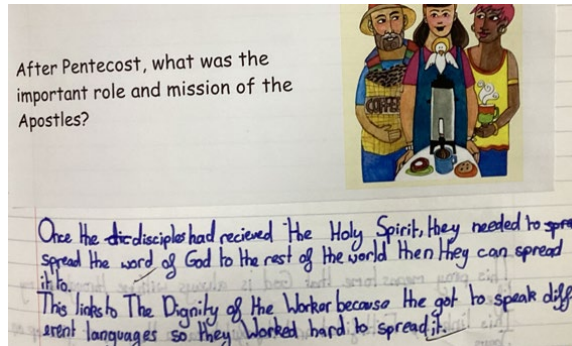 After Pentecost, what was the
important role and mission of the
Apostles?
COFFEE
Once the dicdisciples had recieved the Holy Spirit, they needed to spre
spread the word of God to the rest of the world then they can spread
it to.
This links to The Dignity of the Worker because the got to speak diff
erent languages so they worked hard to spread it.